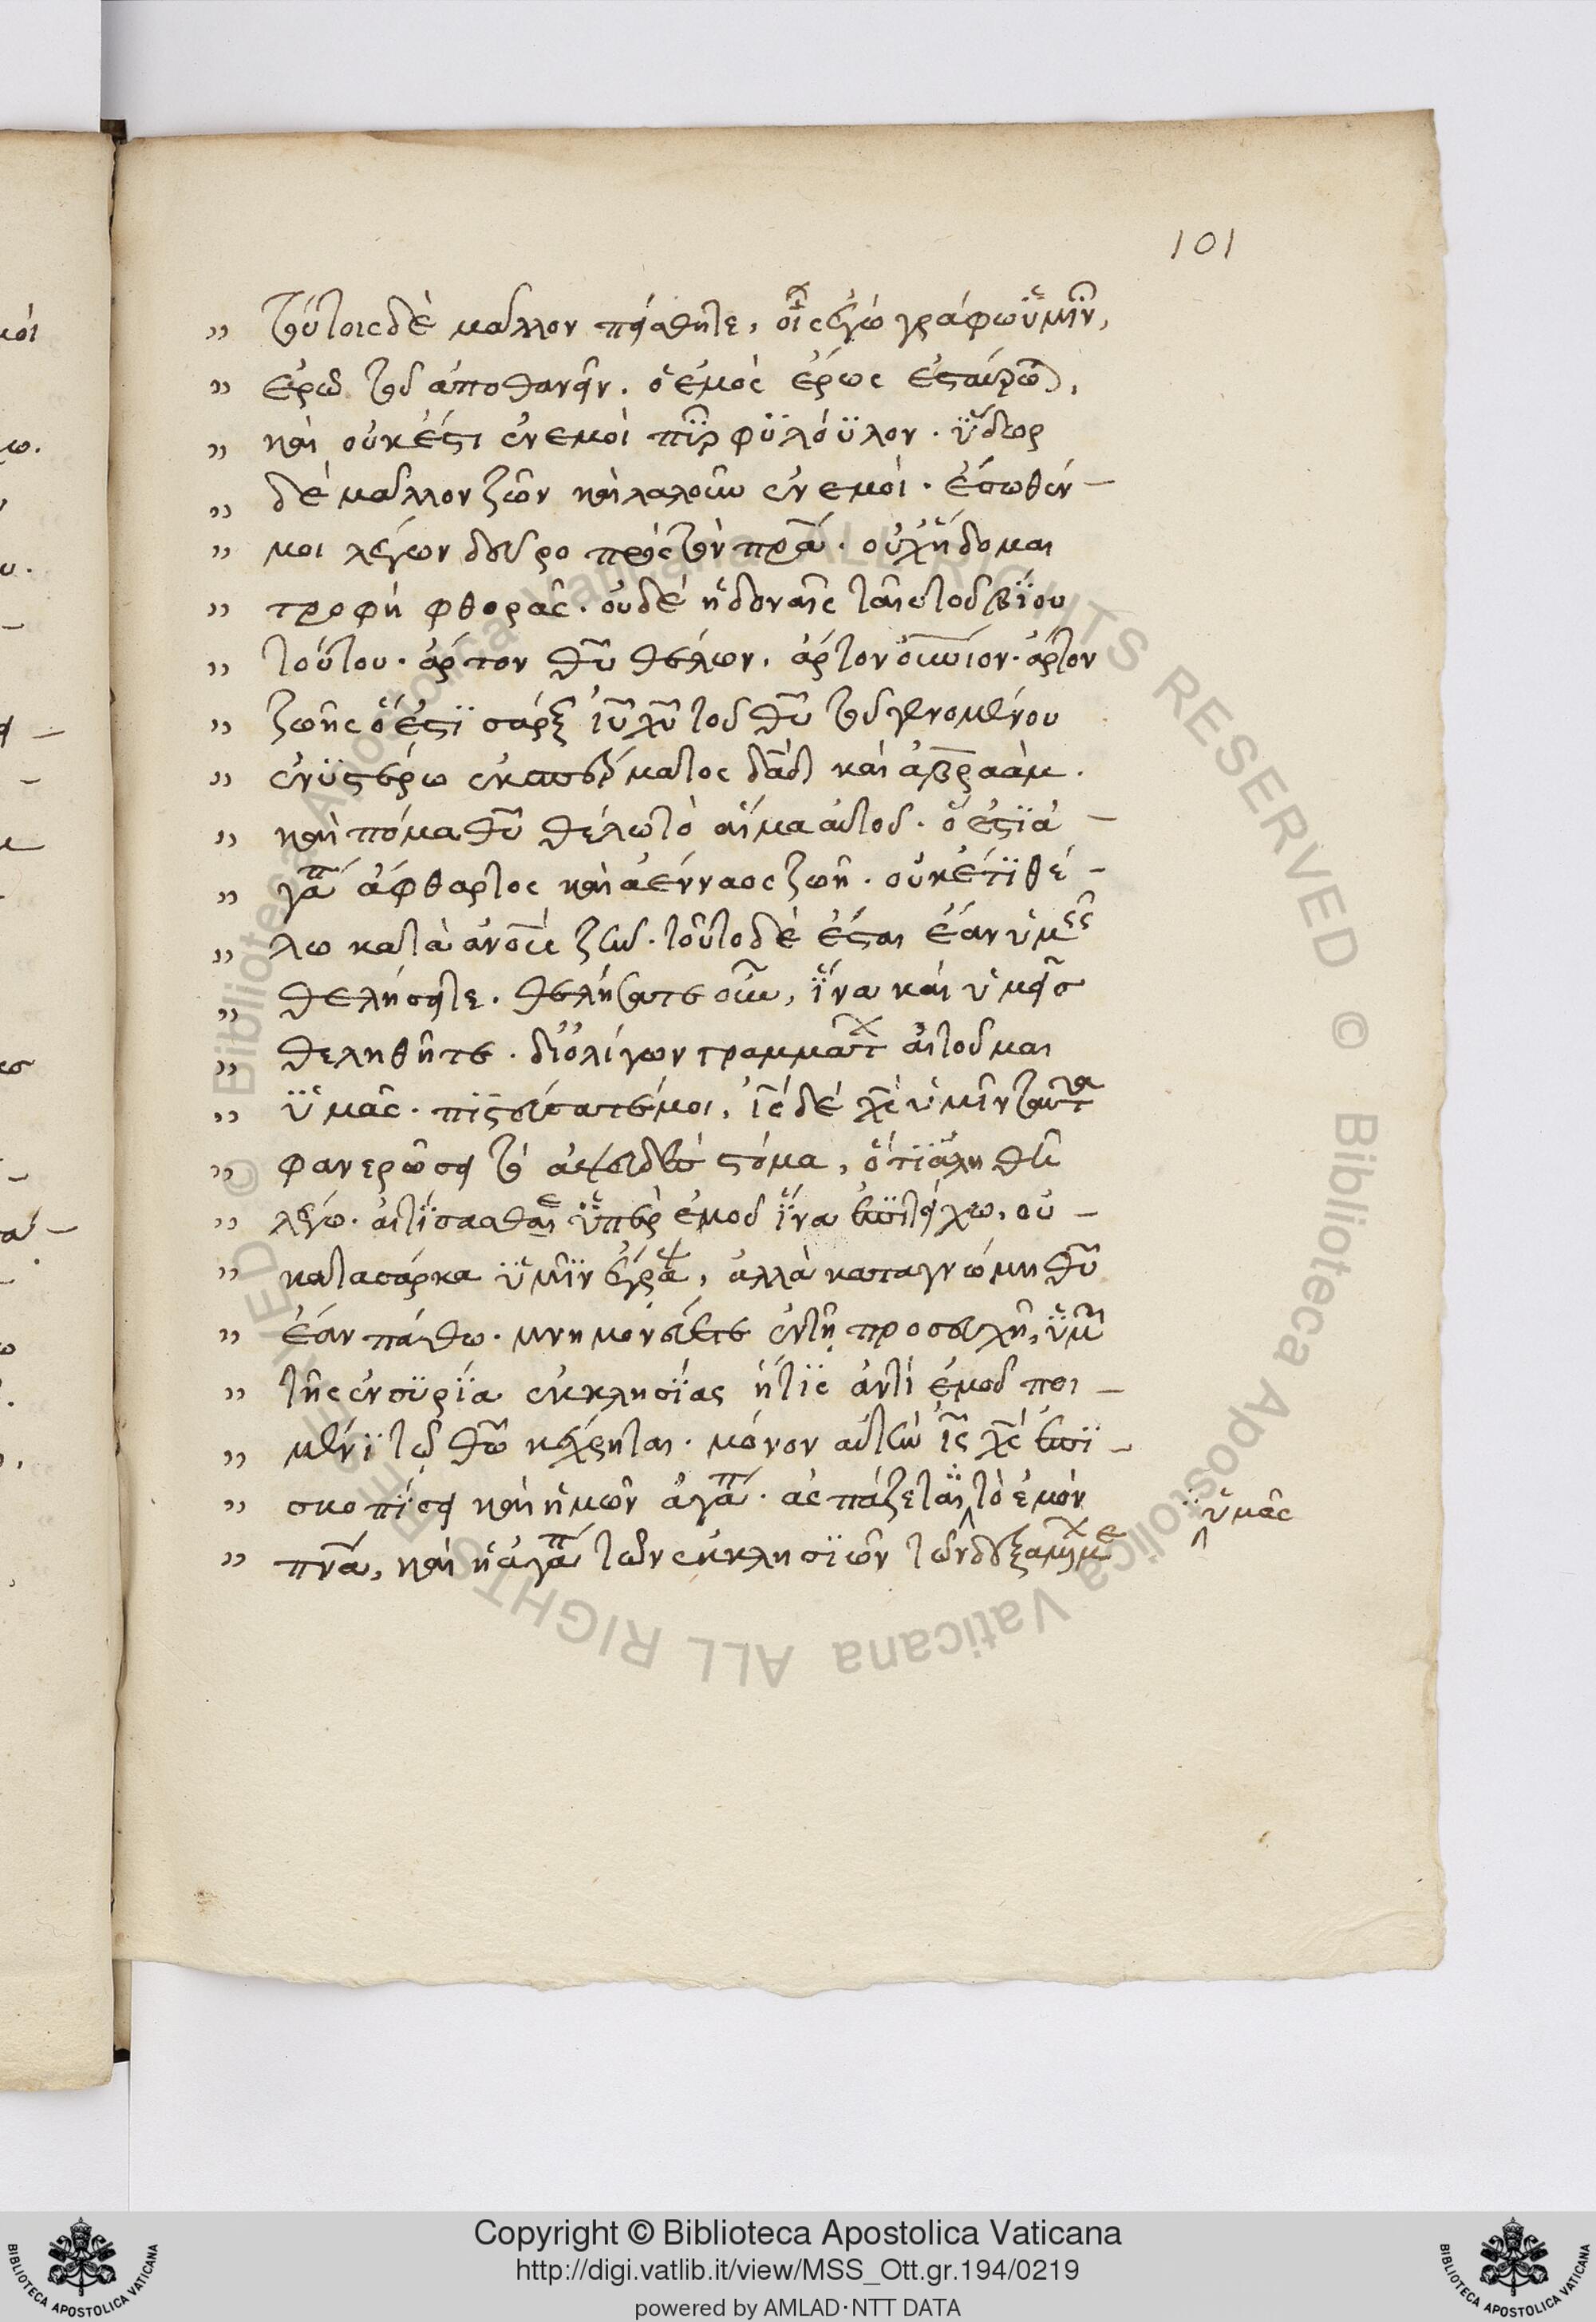 101
" τούτοις δὲ μᾶλλον πείσθητε, οἷς ἐγὼ γράφω ὑμῖν,
" ἐρῶ τοῦ ἀποθανεῖν. ὁ ἐμὸς ἔρως ἐσταύρωται,
" καὶ οὐκ ἔστι ἐν ἐμοὶ πῦρ φϋλόϋλον. ὕδωρ
" δὲ μᾶλλον ζῶν καὶ λαλοῦν ἐν ἐμοί. ἔσωθέν –
" μοι λέγων δεῦρο πρὸς τὸν πρα̅. οὐχ ἥδομαι
" τροφῇ φθορᾶς. οὐδὲ ἡδοναῖς ταῖς τοῦ βΐου
" τούτου. ἄρτον θυ̅ θέλων. ἄρτον οὐνιον. ἄρτον
" ζωῆς ὅ ἐστϊ σάρξ ιυ̅ χυ̅ τοῦ θυ̅ τοῦ γενομένου
" ἐν ϋστέρω ἐκ σπέρματος δα̅δ καὶ ἀβραάμ.
" καὶ πόμα θυ̅ θέλω τὸ αἷμα αὐτοῦ. ὅ ἐστϊ ἀ –
" γάπη ἄφθαρτος καὶ ἀένναος ζωή. οὐκ ἔτϊ θέ –
" λω κατὰ ανου̅ς ζῆν. τοῦτο δὲ ἔσται ἐὰν ὑμεῖς
" θελήσητε. θελήσατε οὖν, ἵνα καὶ ὑμεῖς
" θεληθῆτε. δι' ὀλίγων γραμμάτων αἰτοῦμαι
" ὑμᾶς. πϊστεύσατέ μοι, ις̅ δὲ χς̅ ὑμῖν ταῦτα
" φανερώσει τὸ ἀψευδὲς στόμα, ὅτϊ ἀληθῶς
" λέγω. αἰτΐσασθαι ὑπὲρ ἐμοῦ ἵνα ἐπϊτύχω, οὐ –
" κατα σάρκα ὑμῖν ἔγραψα, ἀλλὰ κατα γνώμην θυ̅
" ἐὰν πάθω. μνημονεύετε ἐν τῇ προσευχῇ, ὑμῶν
" τῆς ἐν συρΐα ἐκκλησΐας ἥτϊς ἀντὶ ἐμοῦ ποι –
" μένϊ τῷ θω̅ κέχρηται. μόνον αὐτὴν ις̅ χς̅ ἐπϊ –
" σκοπΐσει καὶ ἡμῶν ἀγάπη. ἀσπάζεται τὸ ἐμὸν
ὑμᾶς
" πνα̅, καὶ ἡ ἀγάπη τῶν ἐκκλησϊῶν τῶν δεξαμένων με
Copyright © Biblioteca Apostolica Vaticana
http://digi.vatlib.it/view/MSS_Ott.gr.194/0219
powered by AMLAD·NTT DATA